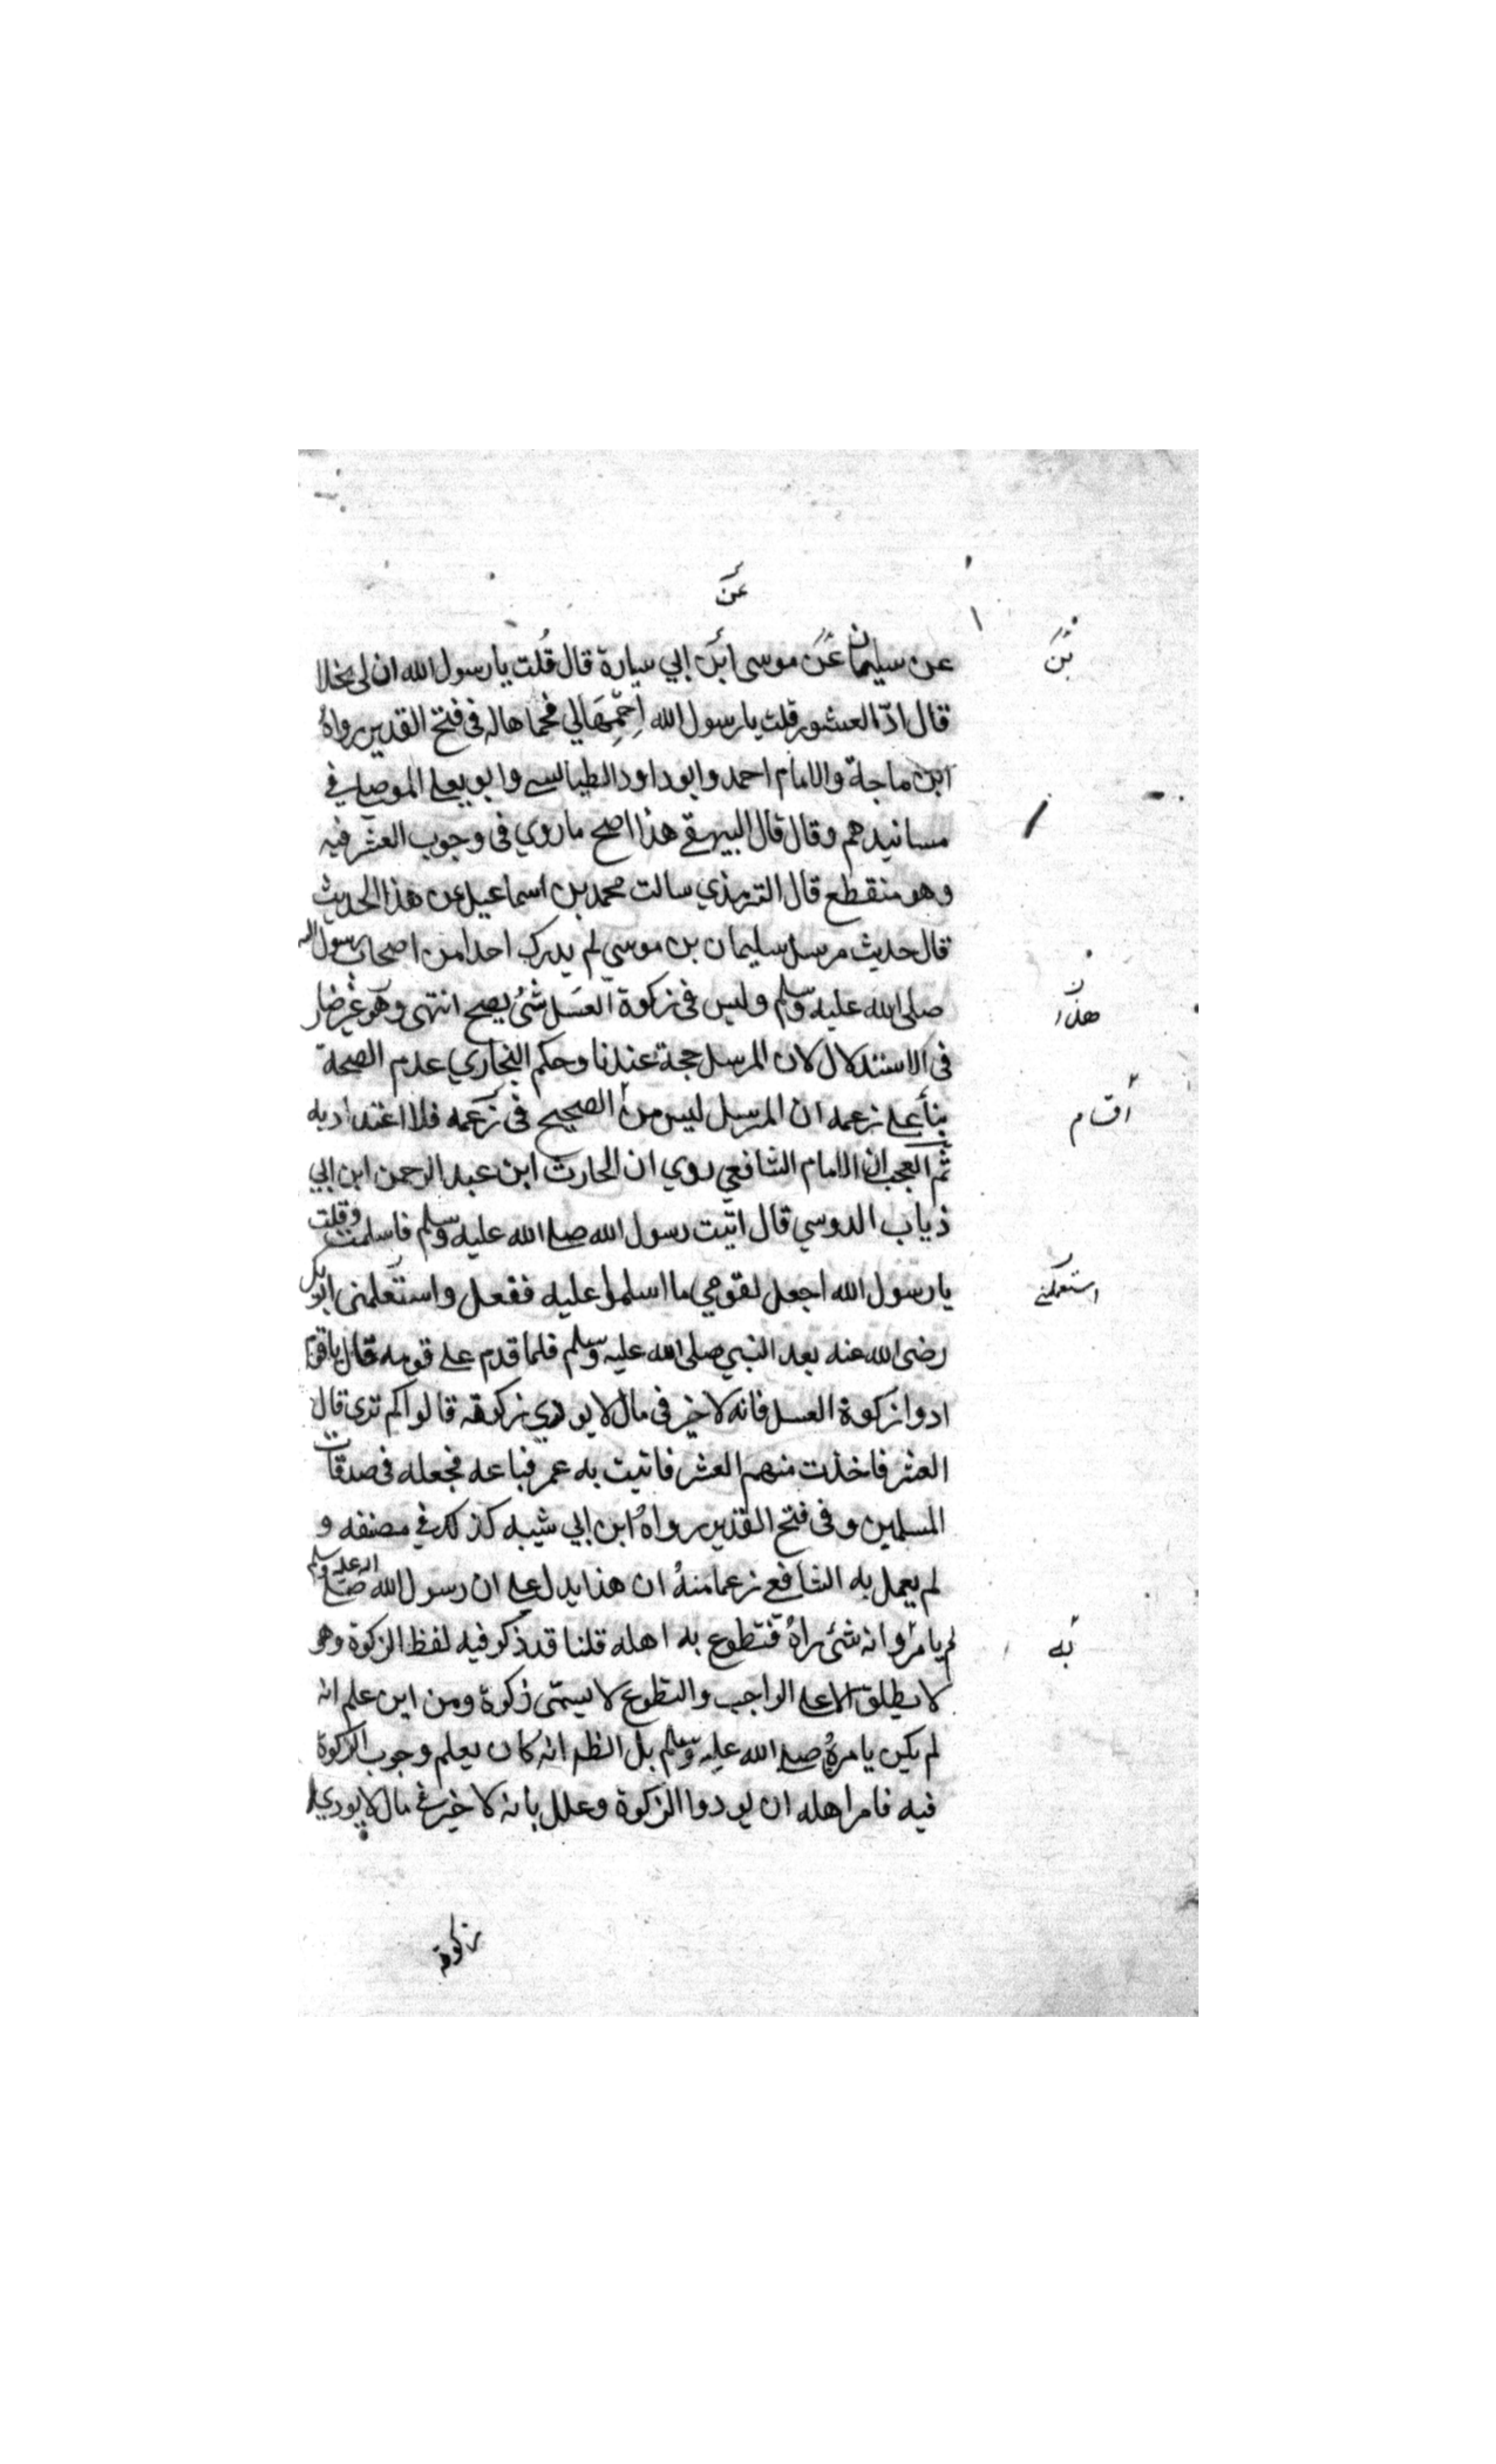 عن
عن سليمان عن موسى ابن ابي سيارة قال قلت يا رسول الله ان لي نخلا
بن
قال ادّ العشور قلت يا رسول الله احمِّهَا لي فحماها له في فتح القدير رواهُ
ابن ماجة والامام احمد وابو داود الطيالسي وابو يعلى الموصلي في
مسانيدهم وقال قال البيهقي هذا اصح ما روي في وجوب العشر فيه
وهو منقطع قال الترمذي سالت محمد بن اسماعيل عن هذا الحديث
قال حديث مرسل سليمان بن موسى لم يدرك احدا من اصحاب رسول الله
صلى الله عليه وسلم وليس في زكوة العسل شئ يصح انتهى وهو غير ضار
هذا
في الاستدلال لان المرسل حجة عندنا وحكم البخاري عدم الصحة
بنأ على زعمه ان المرسل ليس من الصحيح في زعمه فلا اعتداد به
اقسام
ثم العجب ان الامام الشافعي روي ان الحارث ابن عبد الرحمن ابن ابي
ذياب الدوسي قال اتيت رسول الله صلى الله عليه وسلم فاسلمت وقلت
يا رسول الله اجعل لقومي ما اسلموا عليه ففعل واستعلمنى ابو بكر
استعملني
رضى الله عنه بعد النبي صلى الله عليه وسلم فلما قدم على قومه قال يا قوم
ادوا زكوة العسل فانه لا خير في مال لا يودي زكوته قالوا كم ترى قال
العشر فاخذت منهم العشر فاتيت به عمر فباعه فجعله في صدقات
المسلمين وفي فتح القدير رواهُ ابن ابي شيبه كذلك في مصنفه و
لم يعمل به الشافعي زعما منهُ ان هذا يدل على ان رسول الله صلى الله عليه وسلم
لم يامر وانه شئ راهُ فتطوع به اهله قلنا قد ذكر فيه لفظ الزكوة وهو
به
لا يطلق الا على الواجب والتطوع لا يسمّى زكوة ومن اين علم انه
لم يكن يامرهُ صلى الله عليه وسلم بل الظ انه كان يعلم وجوب الزكوة
فيه فامر اهله ان يودوا الزكوة وعلل بانه لا خير في مال لا يودي
زكوة